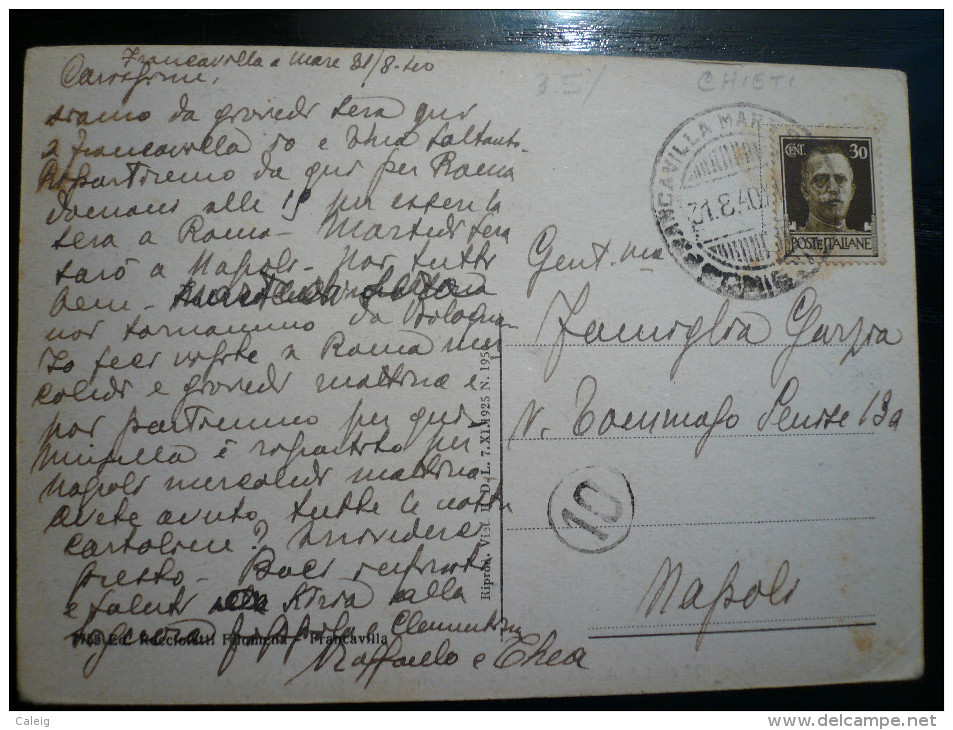 Francavilla a mare 31/8-40
Carissimi,
siamo da giovedi sera qui
a Francavilla io e Thea soltanto.
Ripartiremo da qui per Roma
domani alle 15 per essere la
sera a Roma - Martedi sera
sarò a Napoli - Noi tutti
bene -
noi tornammo da Bologna
Io feci visite a Roma mer
coledi e giovedi mattina e
poi partimmo per qui
Mirella è ripartita per
Napoli mercoledi mattina
avete avuto tutte le nostre
cartoline? Arrivederci
presto - Baci infiniti
e saluti alla
Clementina
Raffaello e Thea
7768 Ed. Racciolatti Filomena - Francavilla
Riprod. Viet. R. D. L. 7.XI.1925 N. 195
35/
CHIETI
FRANCAVILLA MARE
31.8.40
CENT. 30
POSTE ITALIANE
Gent.ma
Famiglia Garzia
V. Tommaso Senise 13a
10
Napoli
Caleig
www.delcampe.net